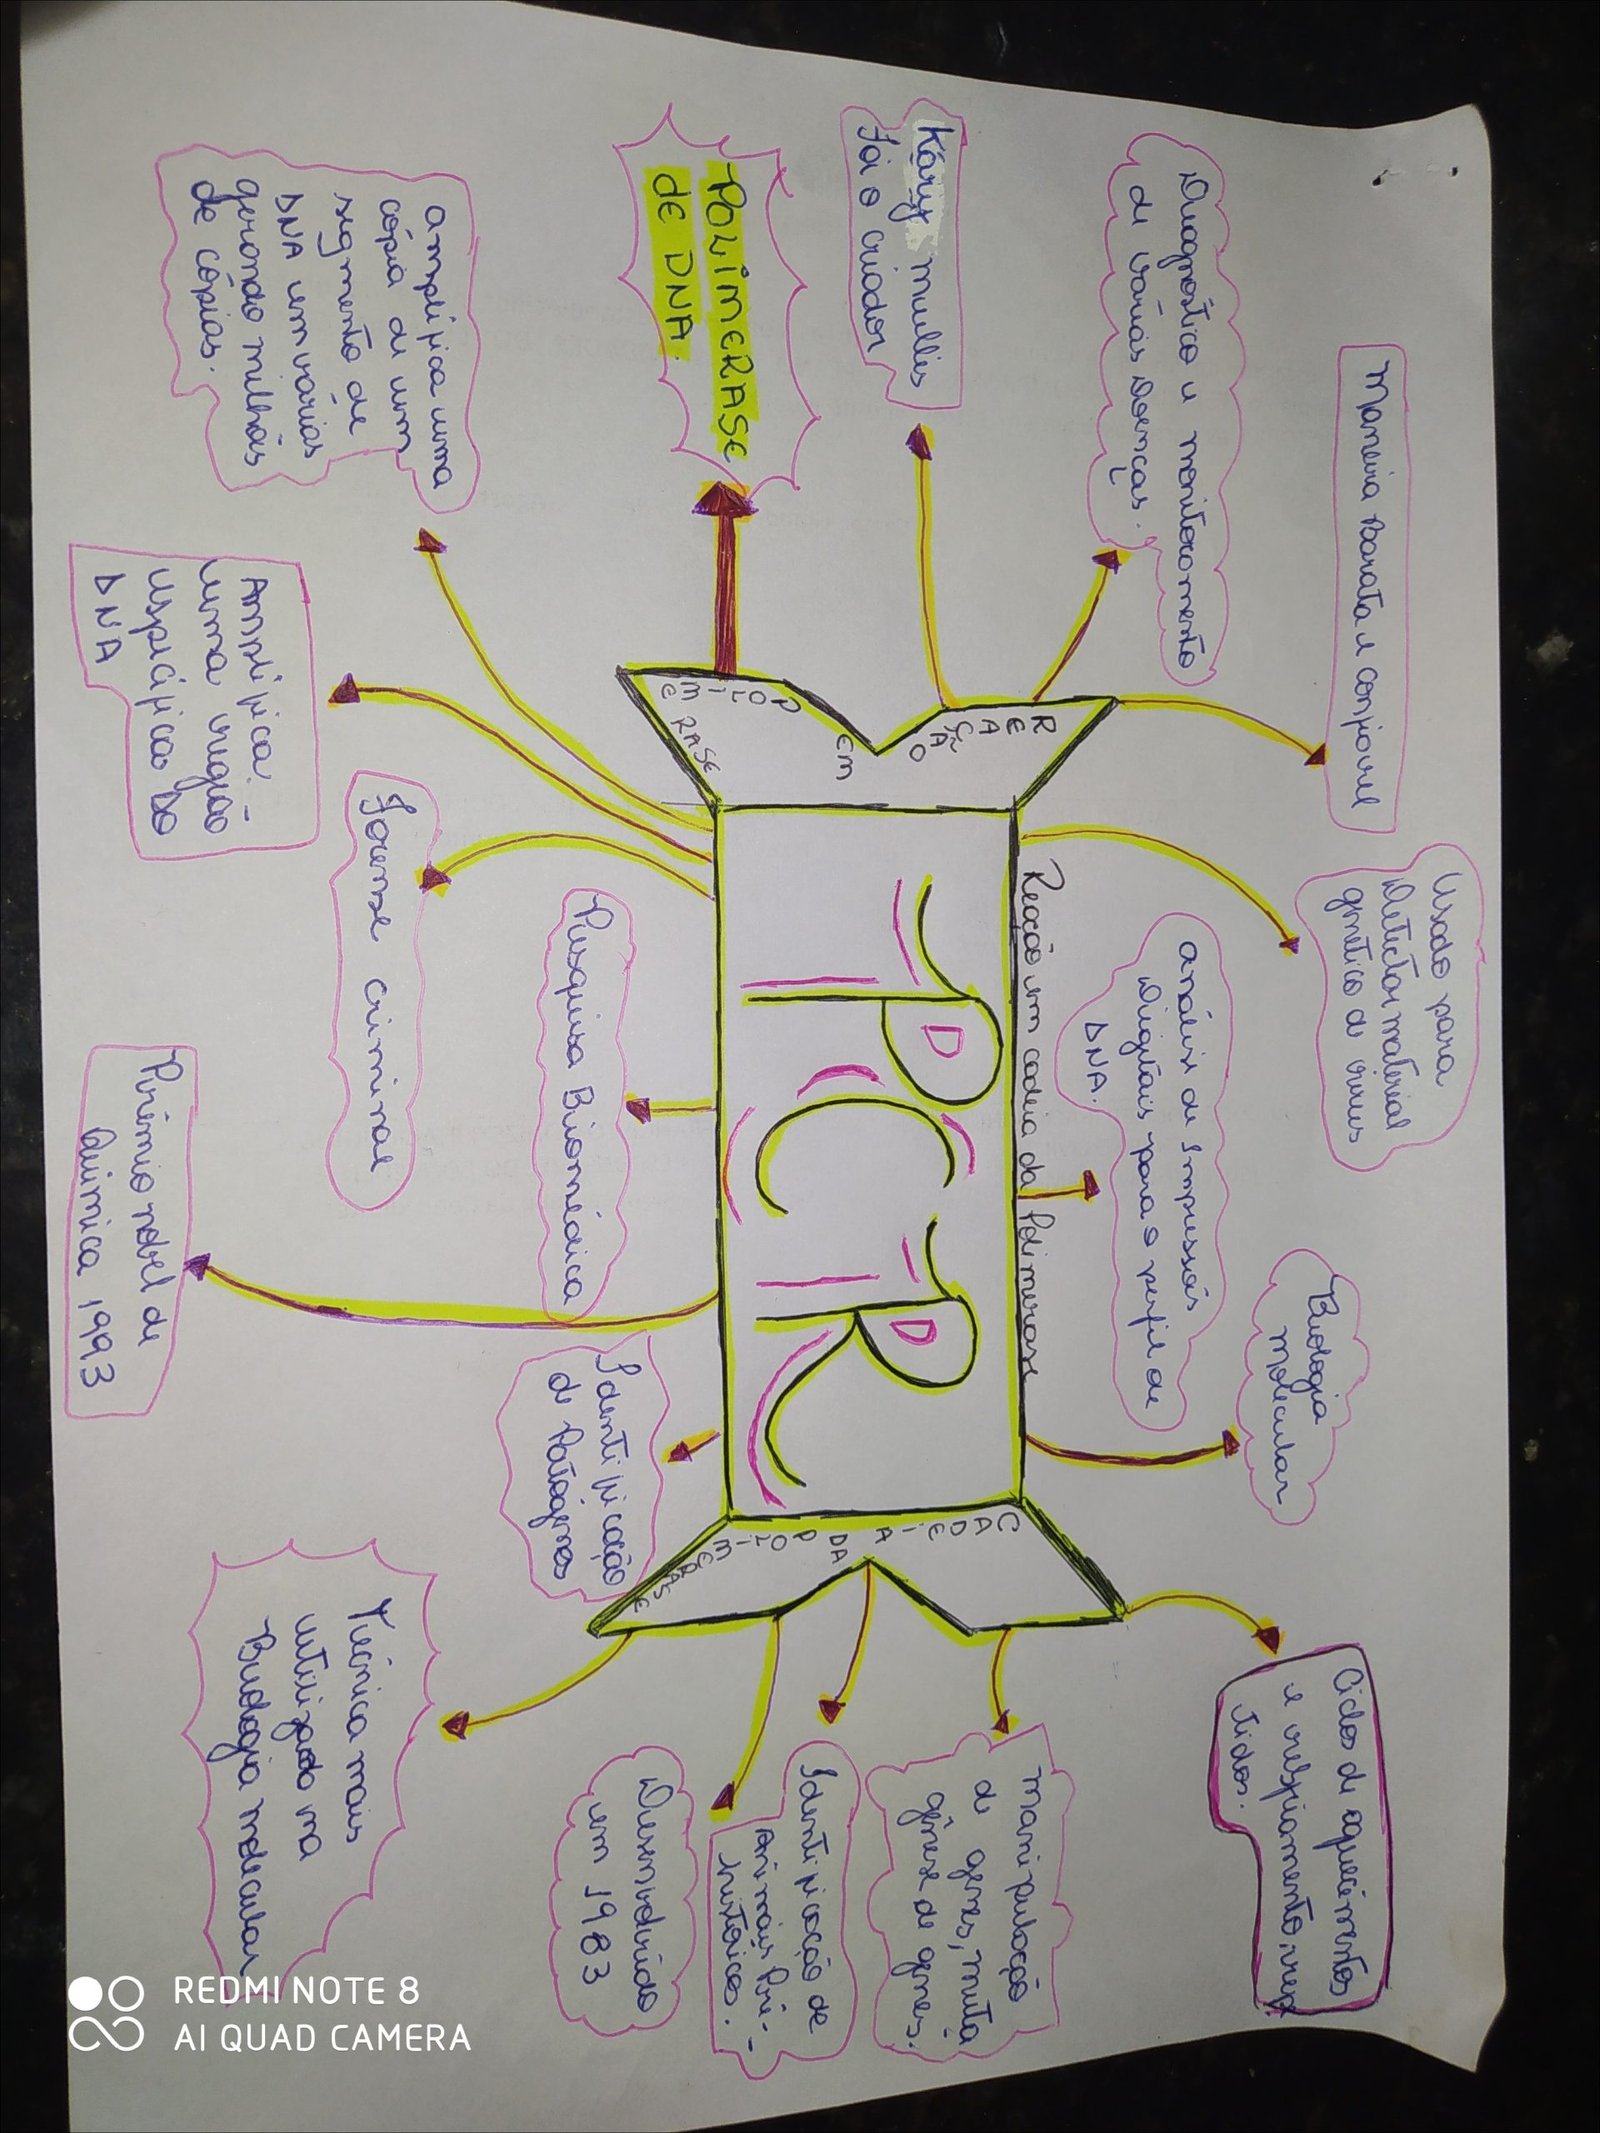 Maneira Barata e confiavel
Usado para
Detectar material
genetico de virus
Biologia
Molecular
Ciclos de aquecimentos
e resfriamento, rep
tidos.
Diagnostico e monitoramento
de várias Doenças.
análise de Impressões
Digitais para o perfil de
DNA.
Kary mullis
foi o criador
Reação em cadeia da Polimerase
REAÇÃO
EM
POLIMERASE
PCR
CADEIA
DA
POLIMERASE
manipulação
de genes, muta
gênese de genes.
Identificação de
Animais Pré-
históricos.
Desenvolvido
em 1983
POLIMERASE
DE DNA.
Pesquisa Biomédica
Identificação
de Patógenos
amplifica uma
cópia de um
segmento de
DNA em varias
gerando milhões
de cópias.
Forense criminal
Técnica mais
utilizado na
Biologia molecular
Amplifica
uma região
especificas DO
DNA
Prêmio nobel de
Quimica 1993
REDMI NOTE 8
AI QUAD CAMERA